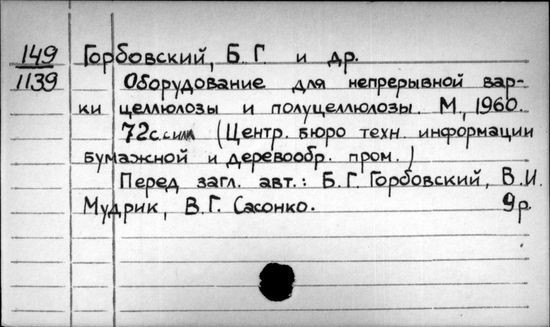 149 Горбовский, Б. Г. и др.
1139 Оборудование для непрерывной вар-
ки целлюлозы и полуцеллюлозы. М., 1960.
72с. с илл (Центр. бюро техн. информации
бумажной и деревообр. пром.)
Перед загл. авт.: Б. Г. Горбовский, В. И.
Мудрик, В. Г. Сасонко. 9р.